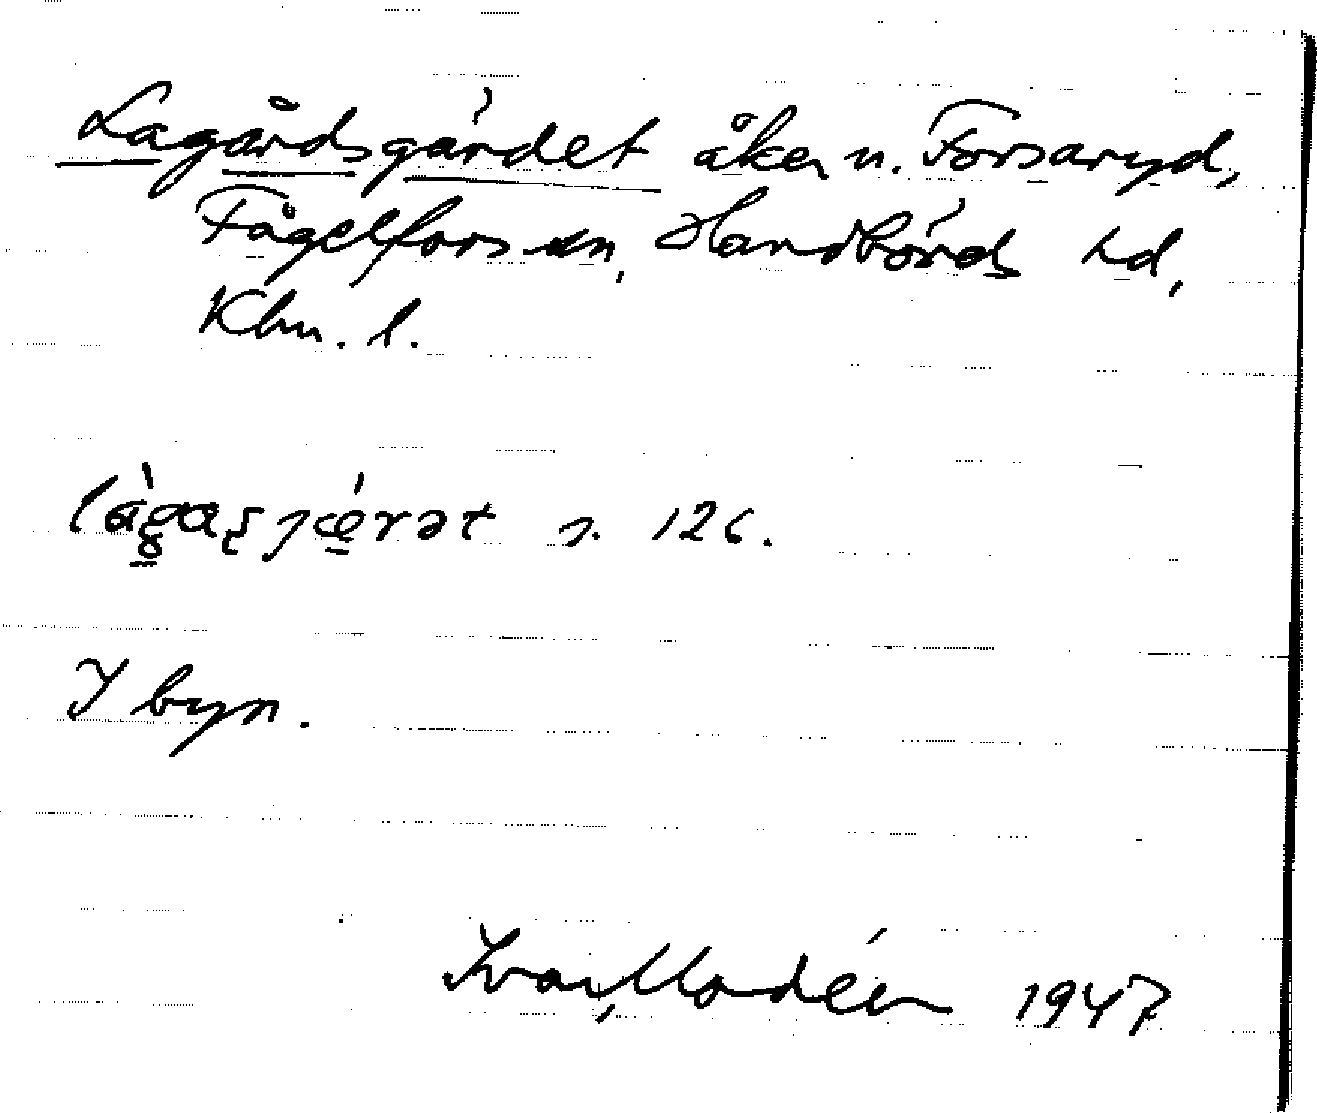 Lagårdsgärdet åker n. Forsaryd,
Fågelfors sn, Handbörds hd,
Klm. l.
s. 126.
I byn.
Ivar Modéer 1947